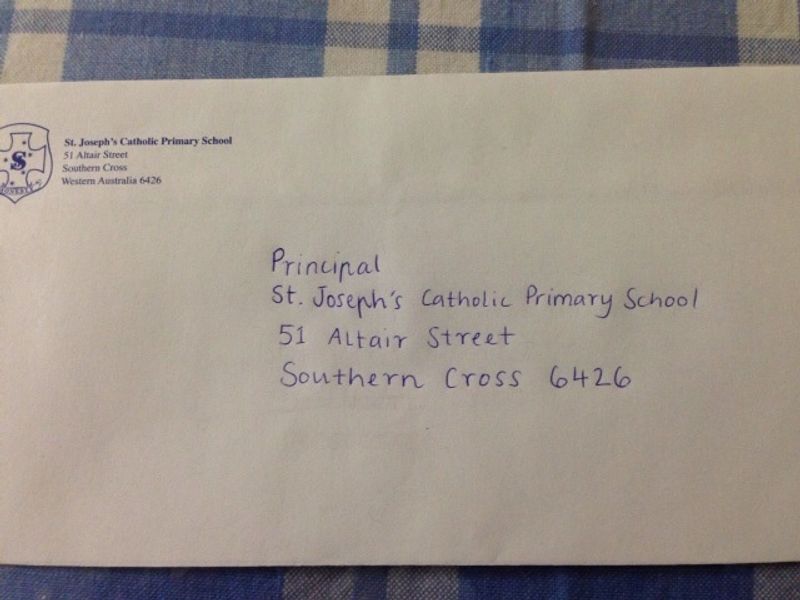 St. Joseph's Catholic Primary School
51 Altair Street
Southern Cross
Western Australia 6426
SS
HONESTY
Principal
St. Joseph's Catholic Primary School
51 Altair Street
Southern Cross 6426